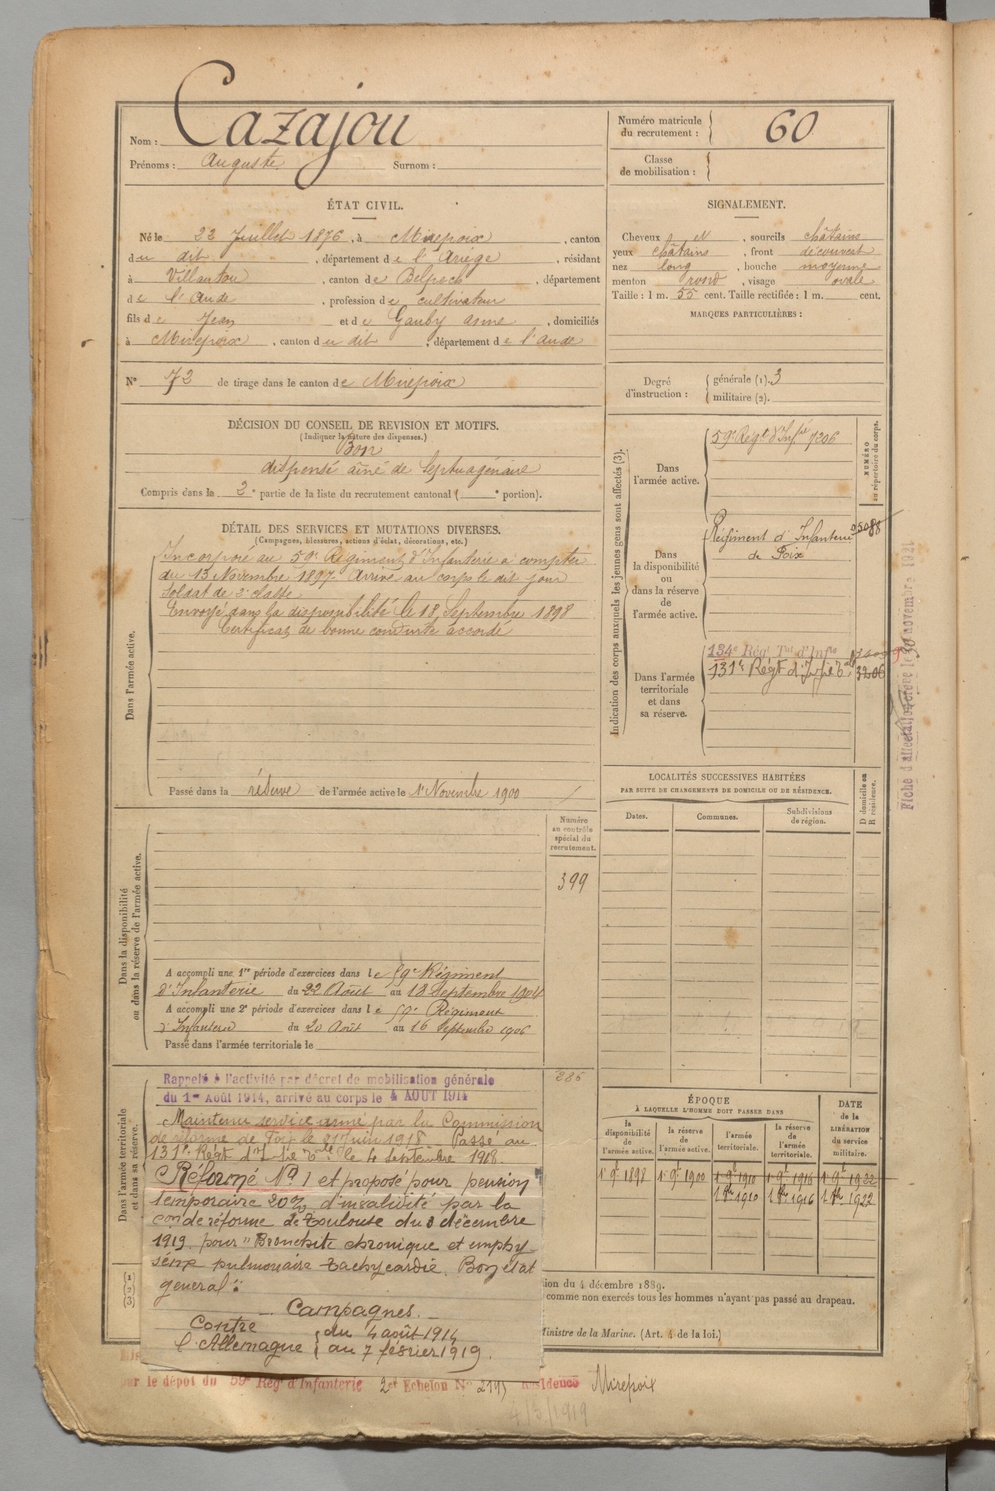 Nom : Cazajou
Prénoms : Auguste Surnom :
Numéro matricule du recrutement : 60
Classe de mobilisation :
ÉTAT CIVIL.
Né le 22 Juillet 1876, à Mirepoix, canton
du dit, département de l'Ariège, résidant
à Villautou, canton de Belpech, département
de l'Aude, profession de cultivateur
fils de Jean et de Gauby Anne, domiciliés
à Mirepoix, canton du dit, département de l'Aude
N° 72 de tirage dans le canton de Mirepoix
SIGNALEMENT.
Cheveux et, sourcils châtains
yeux châtains, front découvert
nez long, bouche moyenne
menton rond, visage ovale
Taille : 1 m. 55 cent. Taille rectifiée : 1 m. cent.
MARQUES PARTICULIÈRES :
Degré d'instruction : générale (1). 3
militaire (2).
DÉCISION DU CONSEIL DE REVISION ET MOTIFS.
(Indiquer la nature des dispenses.)
Bon
dispensé aîné de Septuagénaire
Compris dans la 2e partie de la liste du recrutement cantonal ( e portion).
DÉTAIL DES SERVICES ET MUTATIONS DIVERSES.
(Campagnes, blessures, actions d'éclat, décorations, etc.)
Dans l'armée active.
Incorporé au 59e Régiment d'Infanterie à compter
du 13 Novembre 1897. Arrivé au corps le dit jour
Soldat de 2e classe
Envoyé dans la disponibilité le 18 Septembre 1898
Certificat de bonne conduite accordé
Passé dans la réserve de l'armée active le 1er Novembre 1900
Indication des corps auxquels les jeunes gens sont affectés (3).
NUMÉRO au répertoire du corps.
Dans l'armée active.
59e Régt d'Infie 7306
Dans la disponibilité ou dans la réserve de l'armée active.
Régiment d'Infanterie
de Foix
Dans l'armée territoriale et dans sa réserve.
134e Régt Tal d'Infie
131e Régt d'Infie 3206
Fiche d'affectation le 30 novembre 1921
LOCALITÉS SUCCESSIVES HABITÉES
PAR SUITE DE CHANGEMENTS DE DOMICILE OU DE RÉSIDENCE.
Dates.
Communes.
Subdivisions de région.
D domicile ou R résidence.
Dans la disponibilité ou dans la réserve de l'armée active.
Numéro au contrôle spécial du recrutement.
399
A accompli une 1re période d'exercices dans le 59e Régiment
d'Infanterie du 22 Août au 18 Septembre 1904
A accompli une 2e période d'exercices dans le 59e Régiment
d'Infanterie du 20 Août au 16 Septembre 1906
Passé dans l'armée territoriale le
Dans l'armée territoriale et dans sa réserve.
286
Rappelé à l'activité par décret de mobilisation générale
du 1er Août 1914, arrivé au corps le 4 AOUT 1914
Maintenu service armé par la Commission
de réforme de Foix le 21 Juin 1918. Passé au
131e Régt d'Infie le 4 septembre 1918.
Réformé N° 1 et proposé pour pension
temporaire 20% d'invalidité par la
con de réforme de Toulouse du 3 décembre
1919 pour "Bronchite chronique et emphy-
sème pulmonaire tachycardie. Bon état
général".
Campagnes.
Contre l'Allemagne
du 4 août 1914
au 7 février 1919.
ÉPOQUE
À LAQUELLE L'HOMME DOIT PASSER DANS
la disponibilité de l'armée active.
la réserve de l'armée active.
l'armée territoriale.
la réserve de l'armée territoriale.
DATE de la LIBÉRATION du service militaire.
1er 9bre 1898 1er 9bre 1900 1er 9bre 1910 1er 9bre 1916 1er 9bre 1922
1er 8bre 1910 1er 8bre 1916 1er 8bre 1922
ion du 4 décembre 1889.
comme non exercés tous les hommes n'ayant pas passé au drapeau.
Ministre de la Marine. (Art. 4 de la loi.)
ar le dépôt du 59e Régt d'Infanterie 2e Echelon N° 2195 Résidence Mirepoix
4/3/1919